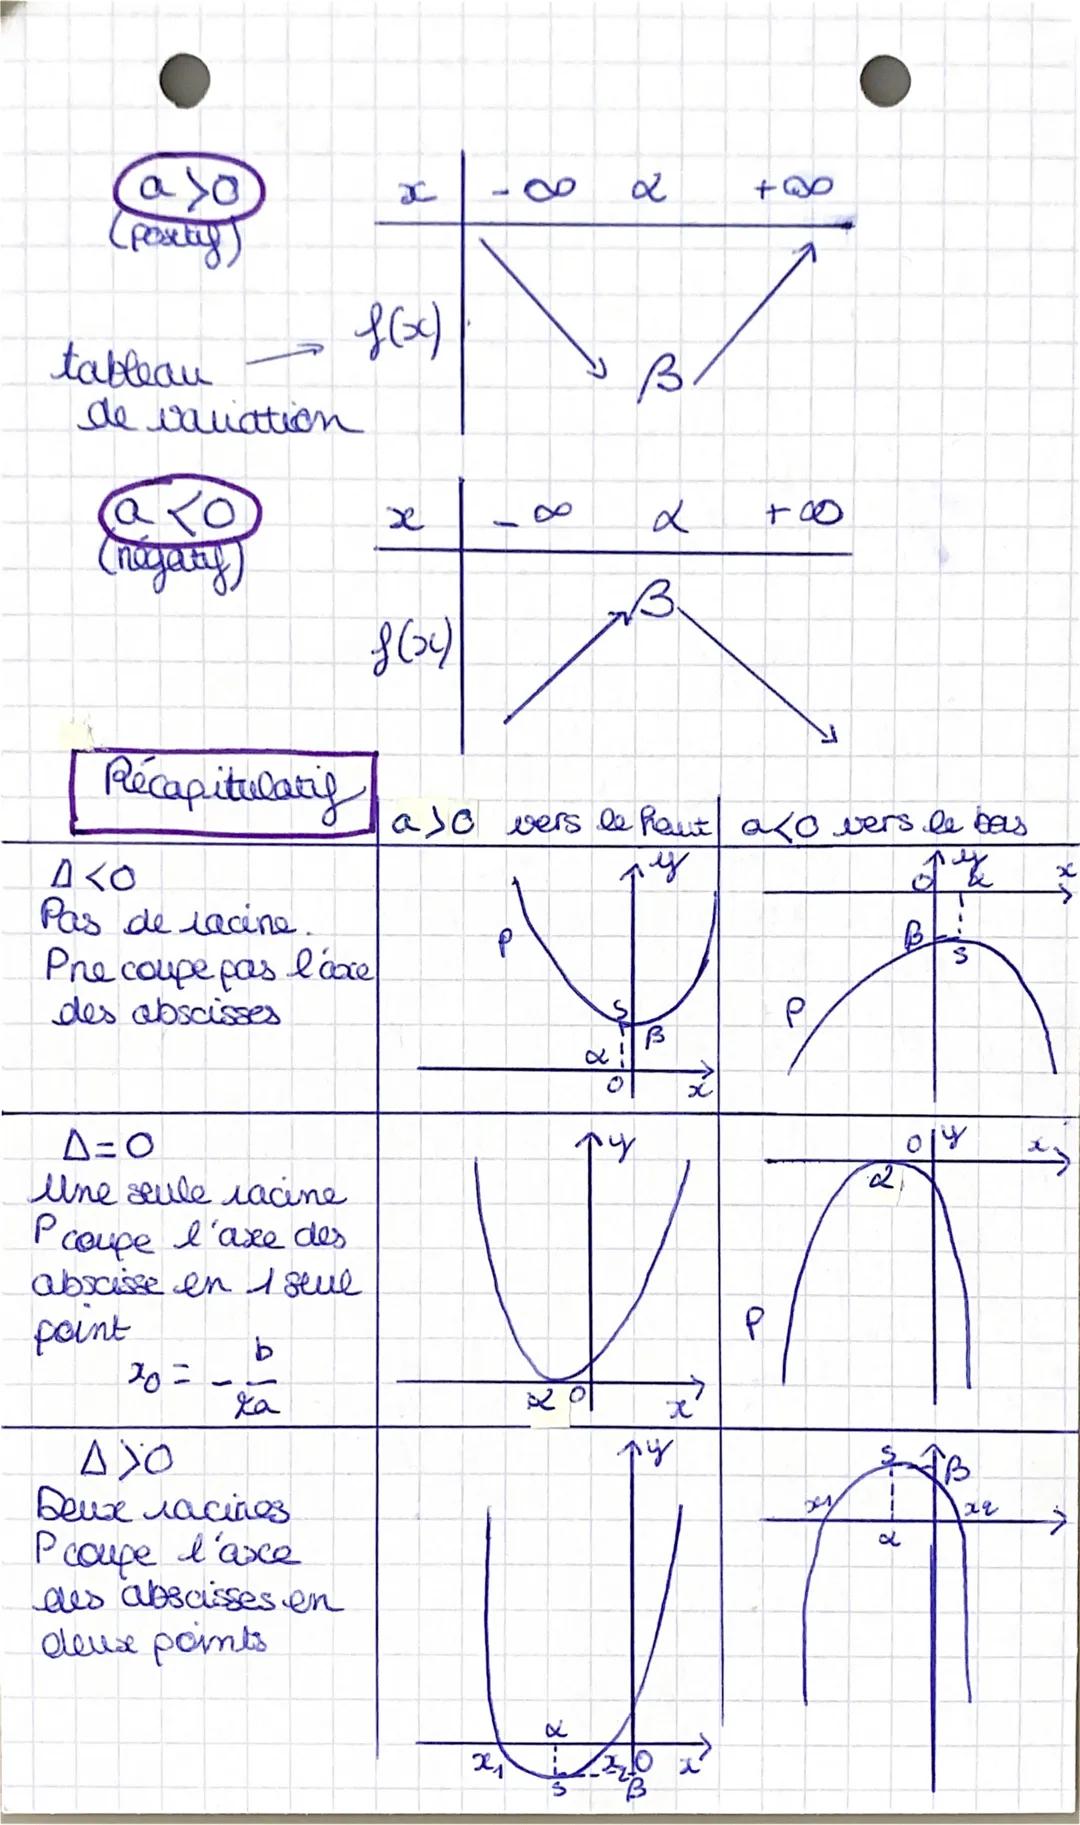 a > 0
(positif)
x -∞ α +∞
f(x)
β
tableau
de variation
a < 0
(négatif)
x -∞ α +∞
f(x)
β
Récapitulatif
a > 0 vers le haut
a < 0 vers le bas
Δ < 0
Pas de racine.
P ne coupe pas l'axe
des abscisses
y
P
S
β
α
O
x
O
y
α
x
β
S
P
Δ = 0
Une seule racine
P coupe l'axe des
abscisse en 1 seul
point
x₀ = - b/2a
y
α O
x
O
y
x
α
P
Δ > 0
Deux racines
P coupe l'axe
des abscisses en
deux points
y
α
x₁
x₂
O
x
S
β
S
β
x₁
x₂
α